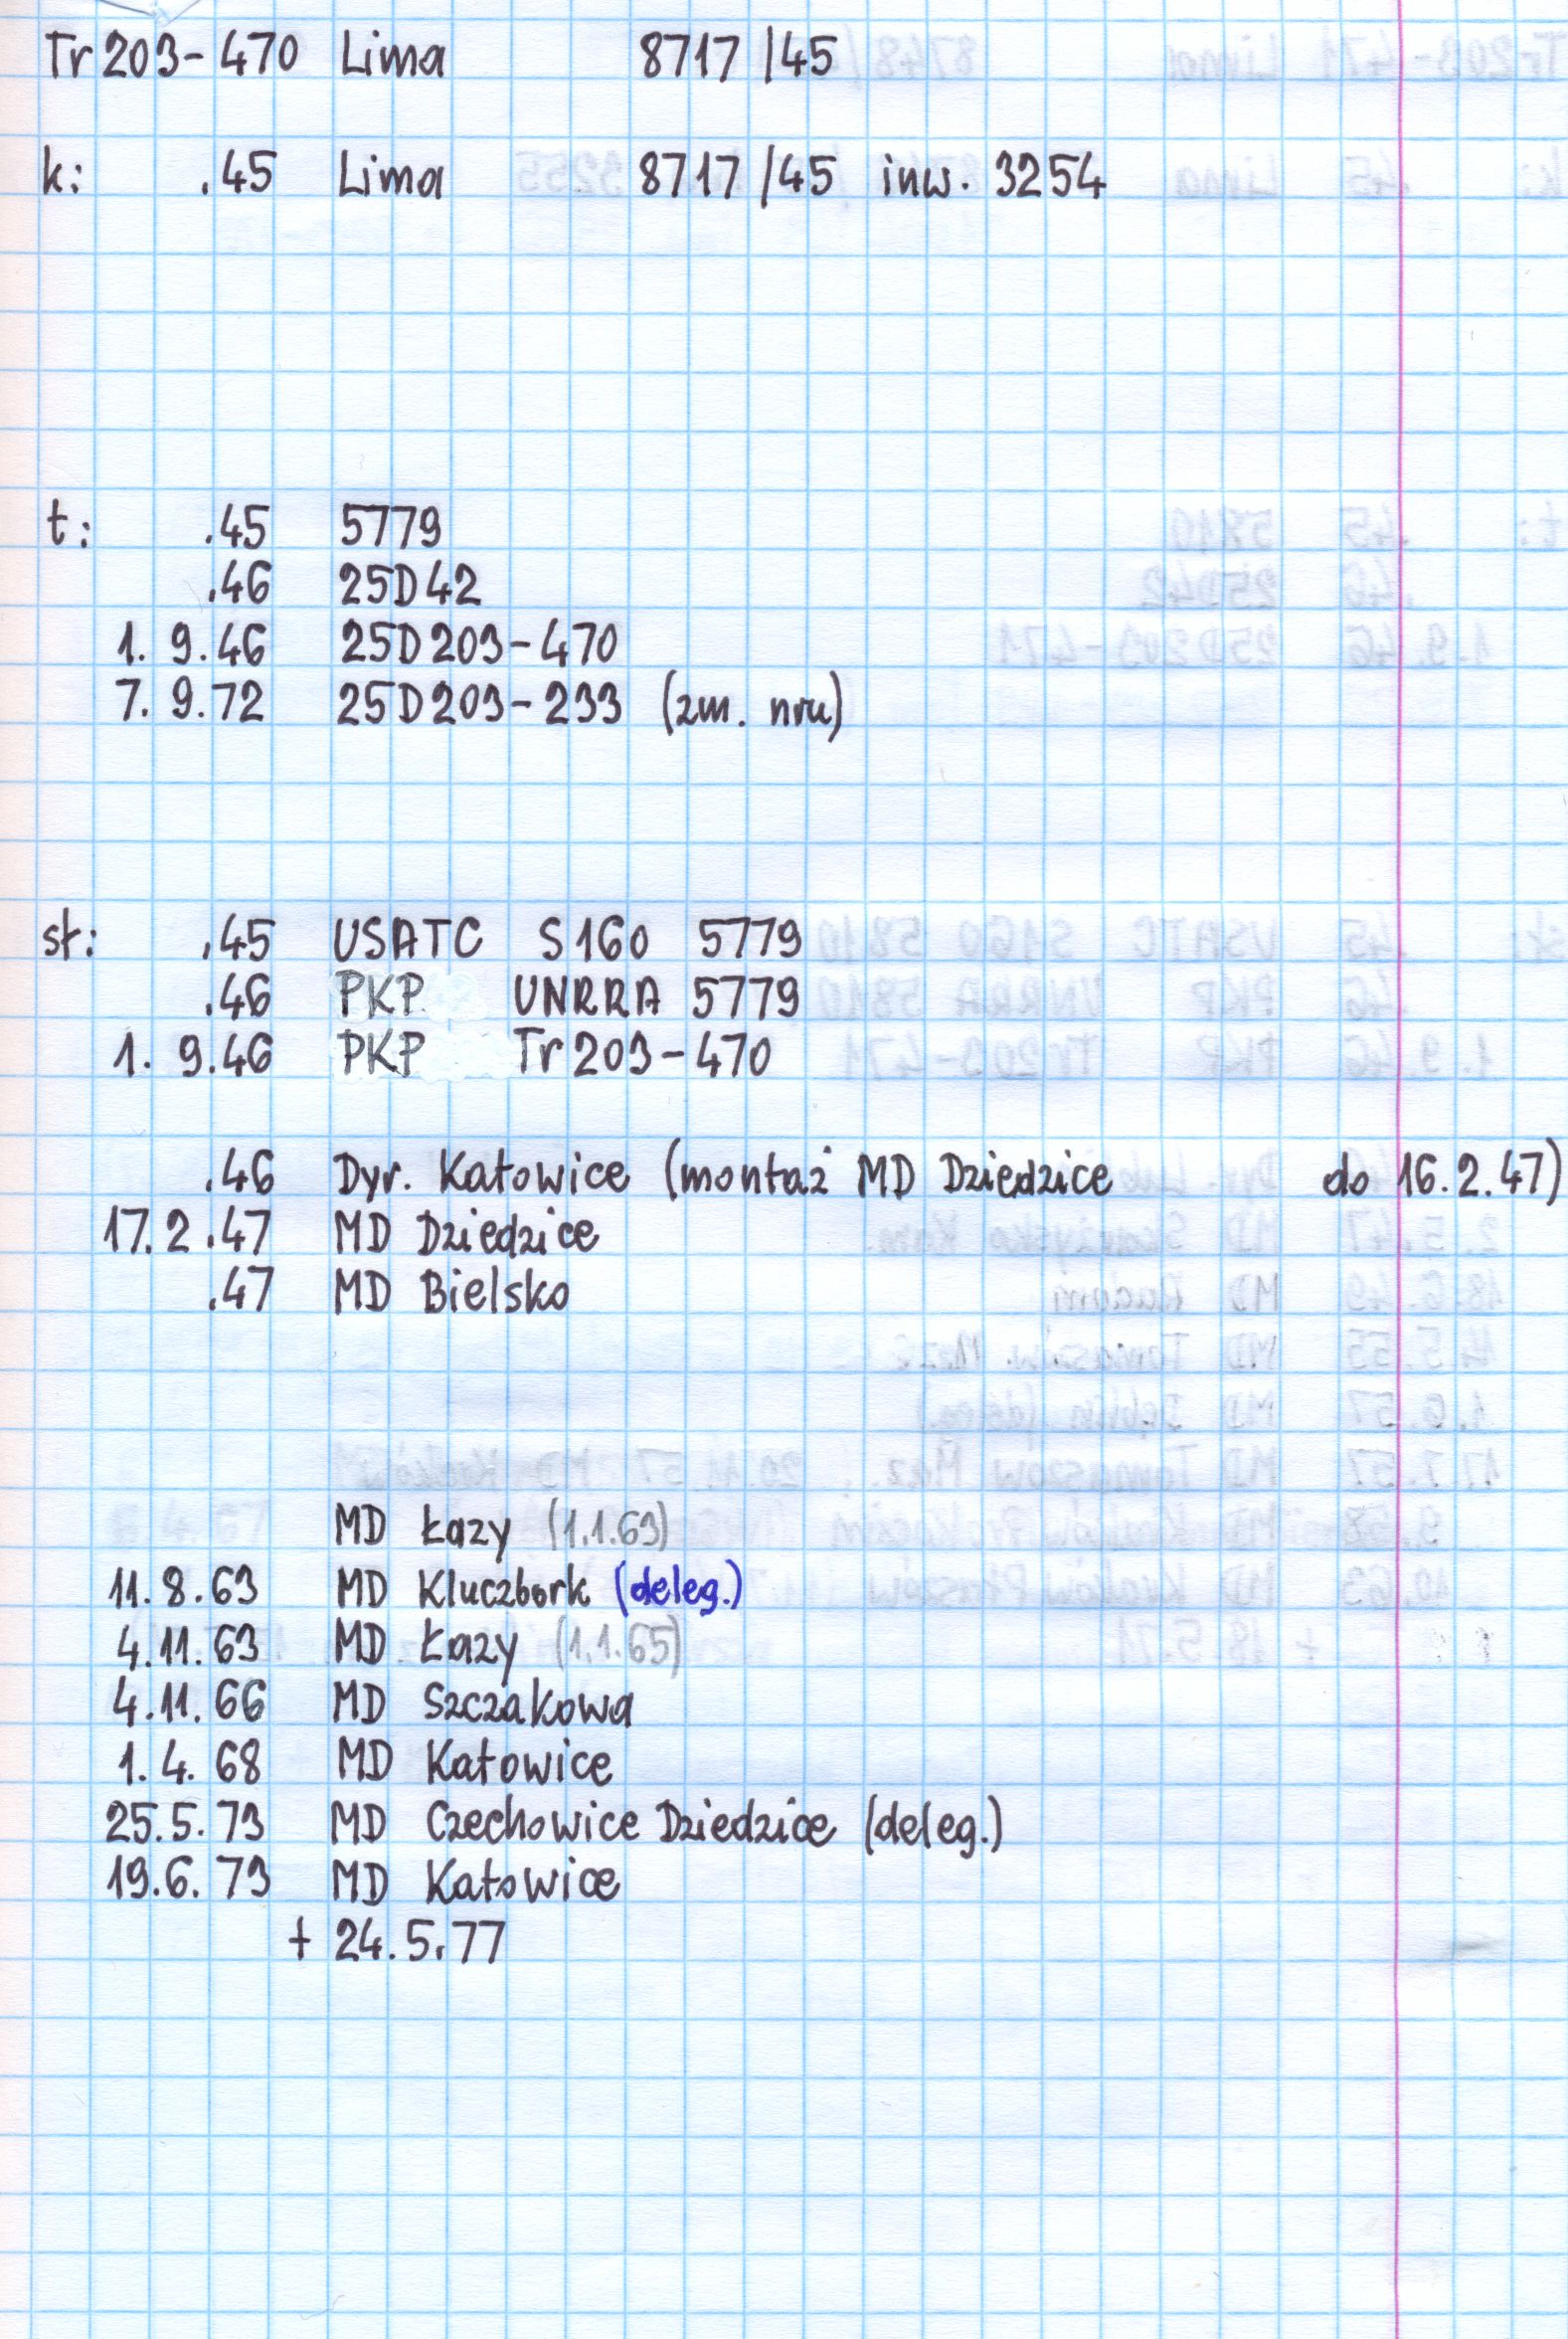 Tr 203-470 Lima 8717/45
k: .45 Lima 8717/45 inw. 3254
t: .45 5779
.46 25D42
1. 9.46 25D203-470
7. 9.72 25D203-233 (zm. nru)
sł: .45 USATC S160 5779
.46 PKP UNRRA 5779
1. 9.46 PKP Tr203-470
.46 Dyr. Katowice (montaż MD Dziedzice do 16.2.47)
17.2.47 MD Dziedzice
.47 MD Bielsko
MD Łazy (1.1.63)
11.8.63 MD Kluczbork (deleg.)
4.11.63 MD Łazy (1.1.65)
4.11.66 MD Szczakowa
1.4.68 MD Katowice
25.5.73 MD Czechowice Dziedzice (deleg.)
19.6.73 MD Katowice
+ 24.5.77